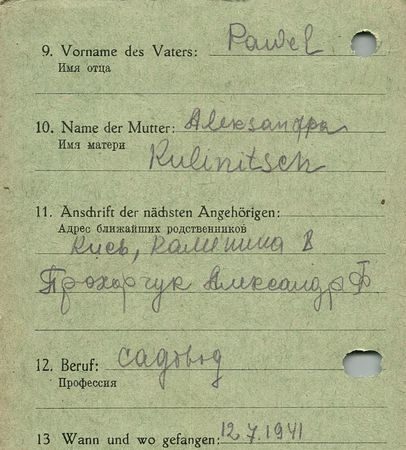 9. Vorname des Vaters: Pawel
Имя отца
10. Name der Mutter: Александра
Имя матери
Kulinitsch
11. Anschrift der nächsten Angehörigen:
Адрес ближайших родственников
Калинина 8
Прохорчук Александр Ф
12. Beruf: садовод
Профессия
13 Wann und wo gefangen: 12.7.1941